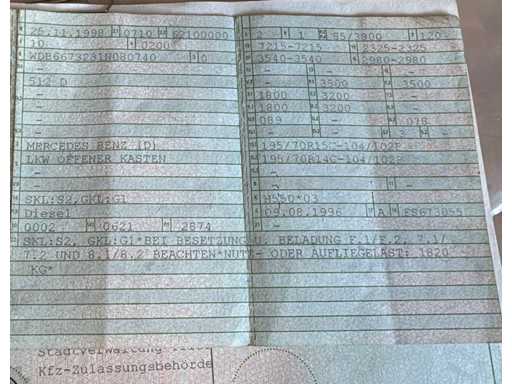 25.11.1998 0710 62100000
10 0200
WDB6673231N080740 0
-
512 D
-
-
-
-
MERCEDES BENZ (D)
LKW OFFENER KASTEN
-
-
SKL:S2,GKL:G1
Diesel
0002 0621 2874
2 1 95/3800 120
7215-7215 2325-2325
3540-3540 2980-2980
- -
- 3500 - 3500
1800 3200 -
1800 3200 -
089 - 078
- - 3 -
195/70R15C-104/102R
195/70R14C-104/102P
-
-
H550*03
09.08.1996 A
SKL:S2, GKL:G1*BEI BESETZUNG U. BELADUNG F.1/F.2, 7.1/
7.2 UND 8.1/8.2 BEACHTEN*NUTZ- ODER AUFLIEGELAST: 1820
KG*
Stadtverwaltung
Kfz-Zulassungsbehörde